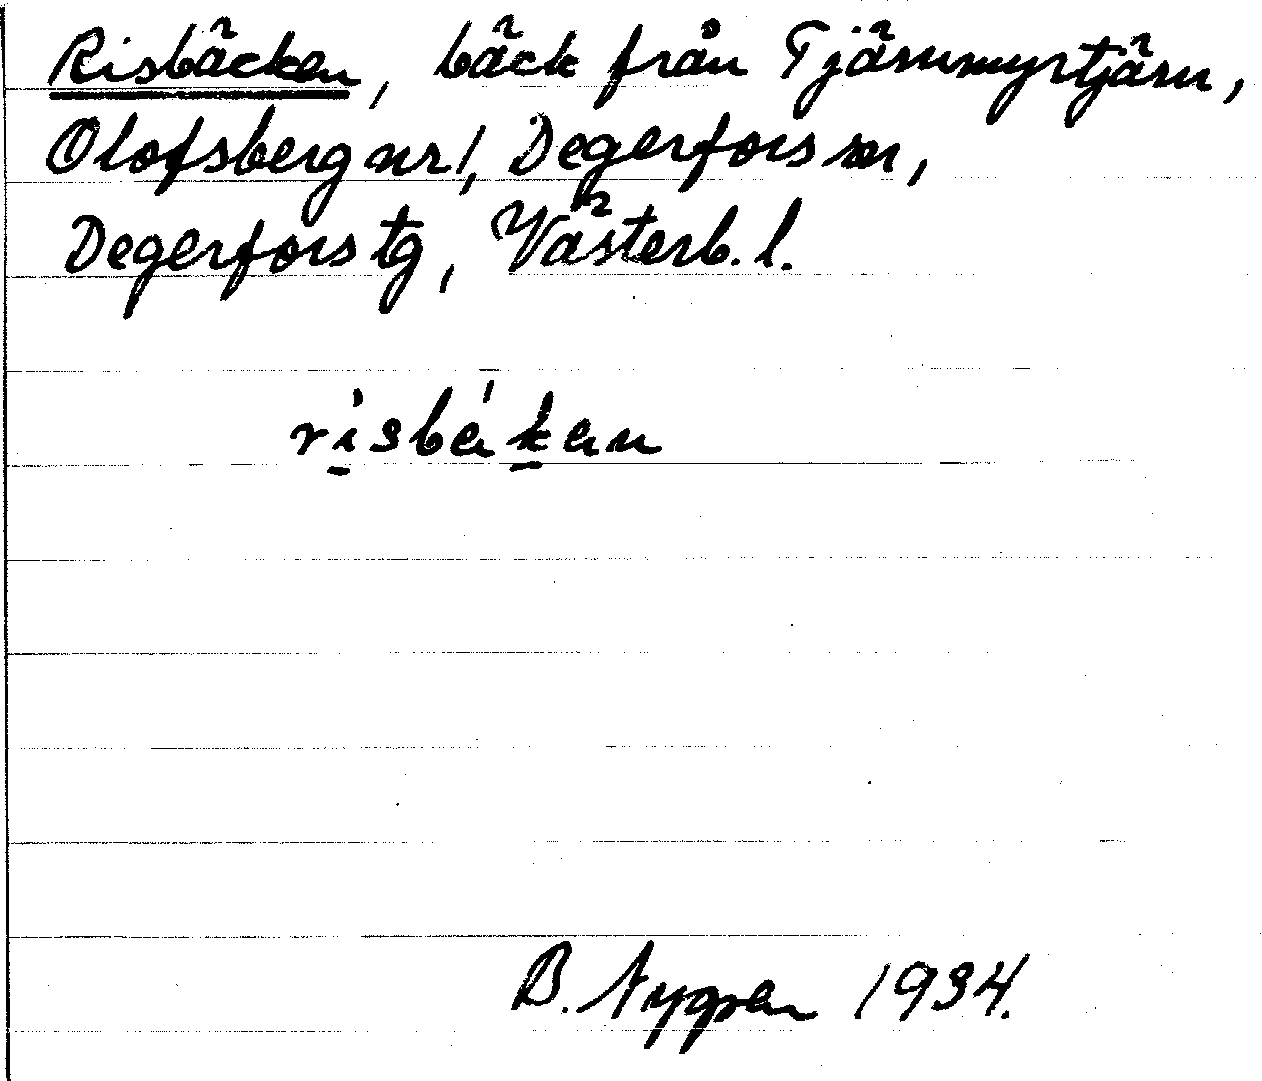 Risbäcken, bäck från Tjärnmyrtjärn,
Olofsberg nr 1, Degerfors sn,
Degerfors tg, Västerb. l.
ri̠sbá̈k̠en
B. Nygren 1934.